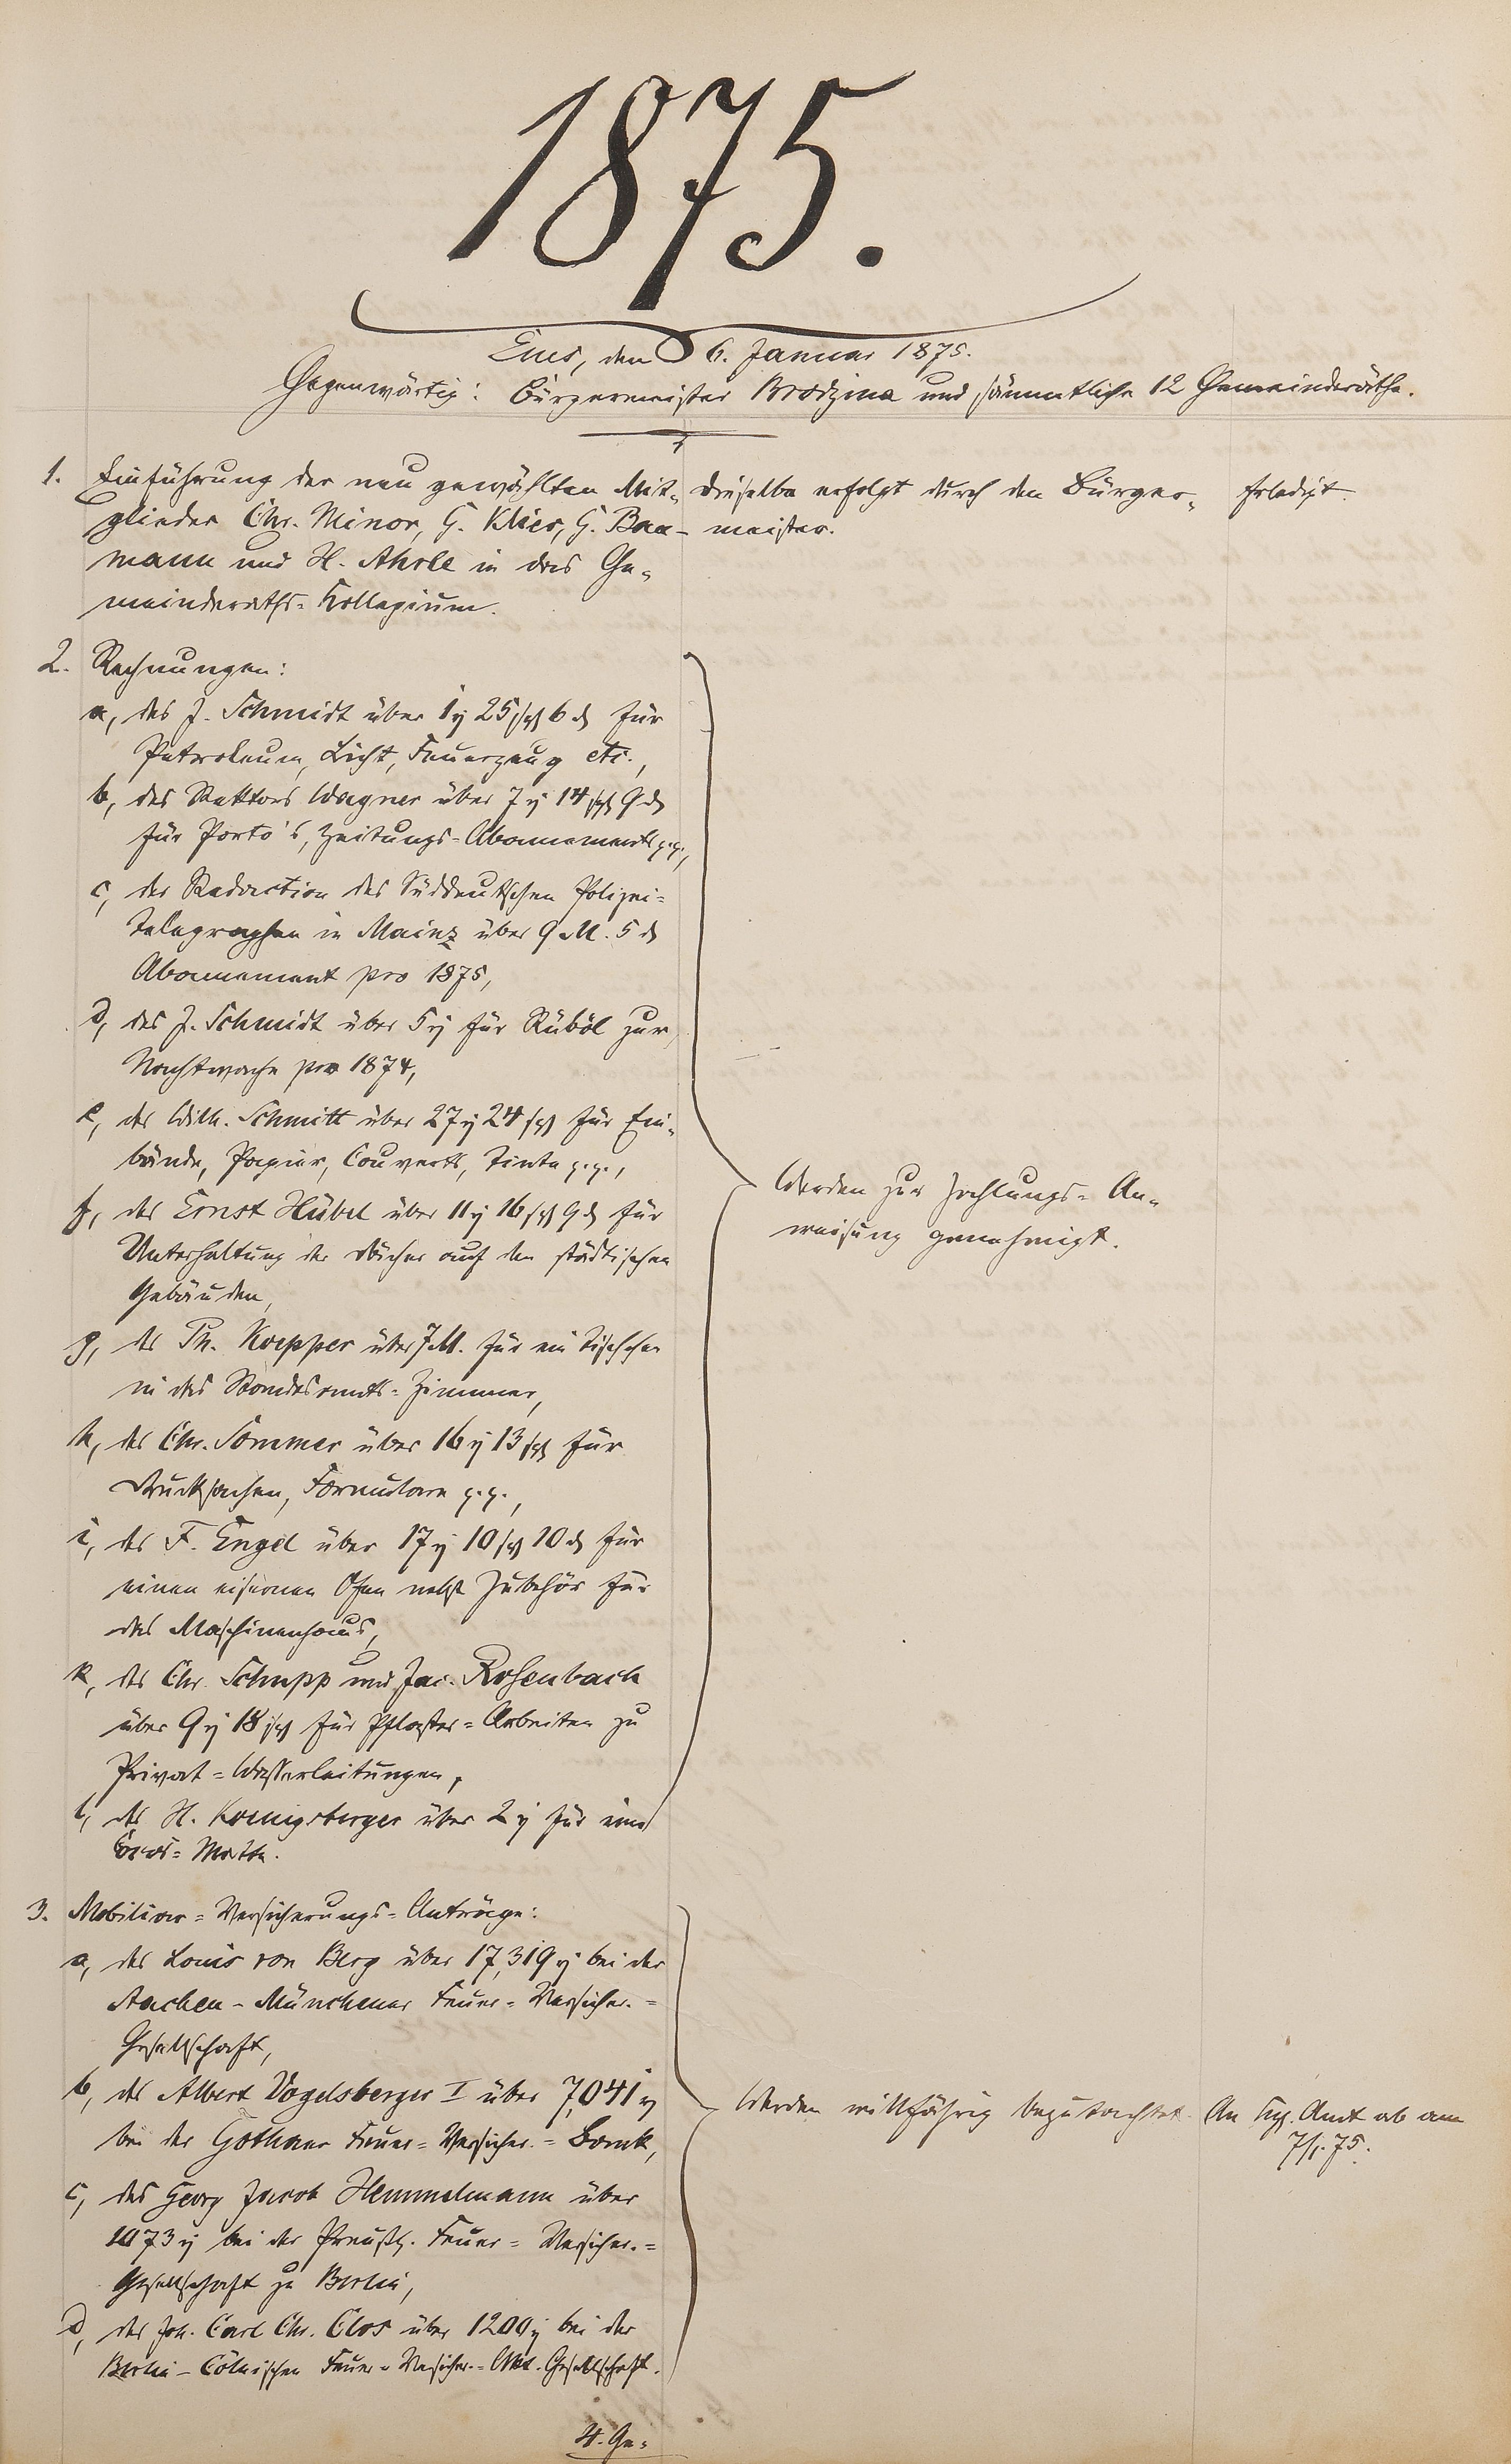 1875.
Ems, den 6. Januar 1875.
Gegenwärtig: Bürgermeister Brodzina und sämmtliche 12 Gemeinderäthe.
1. Einführung der neu gewählten Mit-
glieder Chr. Minor, G. Klier, G. Bau-
mann und H. Ahrle in das Ge-
meinderaths-Kollegium.
Dieselbe erfolgt durch den Bürger-
meister.
Erledigt.
2. Rechnungen:
a, des J. Schmidt über 1 25 6 für
Petroleum, Licht, Feuerzeug etc.,
b, des Rektors Wagner über 7 14 9
für Porto's, Zeitungs-Abonnements p.p.,
c, der Redaction des Süddeutschen Polizei-
Telegraphen in Mainz über 9 M. 5
Abonnement pro 1875,
d, des J. Schmidt über 5 für Rüböl zur
Nachtwache pro 1874,
e, des Wilh. Schmitt über 27 24 für Ein-
bände, Papier, Couverts, Tinte p.p.,
f, des Ernst Hübel über 11 16 9 für
Unterhaltung der Dächer auf den städtischen
Gebäuden,
g, des Ph. Kaepper über 7 M. für ein Tischchen
in das Standesamts-Zimmer,
h, des Chr. Sommer über 16 13 für
Drucksachen, Formulare p.p.,
i, des F. Engel über 17 10 10 für
einen eisernen Ofen nebst Zubehör für
das Maschinenhaus,
k, des Chr. Schupp und Jac. Rosenbach
über 9 18 für Pflaster-Arbeiten zu
Privat-Wasserleitungen,
l, des H. Koenigsberger über 2 für eine
Matte.
Werden zur Zahlungs-An-
weisung genehmigt.
3. Mobiliar-Versicherungs-Anträge:
a, des Louis von Berg über 17,319 bei der
Aachen-Münchener Feuer-Versicher.-
Gesellschaft,
b, des Albert Vogelsberger I über 7,041
bei der Gothaer Feuer-Versicher.-Bank,
c, des Georg Jacob Hemmelmann über
1073 bei der Preußs. Feuer-Versicher.-
Gesellschaft zu Berlin,
d, des Joh. Carl Chr. Clos über 1200 bei der
Berlin-Cölnischen Feuer-Versicher.-Akt. Gesellschaft.
Werden willfährig begutachtet.
An Kgl. Amt ab am
7/1.75.
4. Ge-